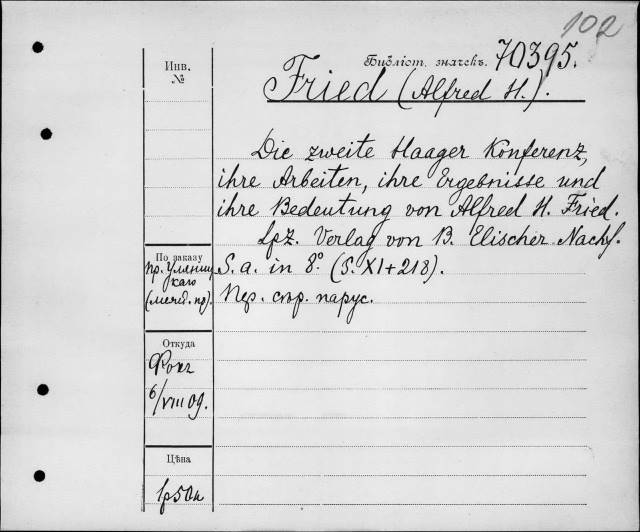 102
Библіот. значекъ. 70395.
Инв.
№
Fried (Alfred H.).
Die zweite Haager Konferenz,
ihre Arbeiten, ihre Ergebnisse und
ihre Bedeutung von Alfred H. Fried.
Lpz. Verlag von B. Elischer Nachf.
S. a. in 8° (S. XI+218).
Пер. сѣр. парус.
По заказу
пр. Уляниц
каго
Откуда
Фокъ
6/VIII 09.
Цѣна
1р 50к